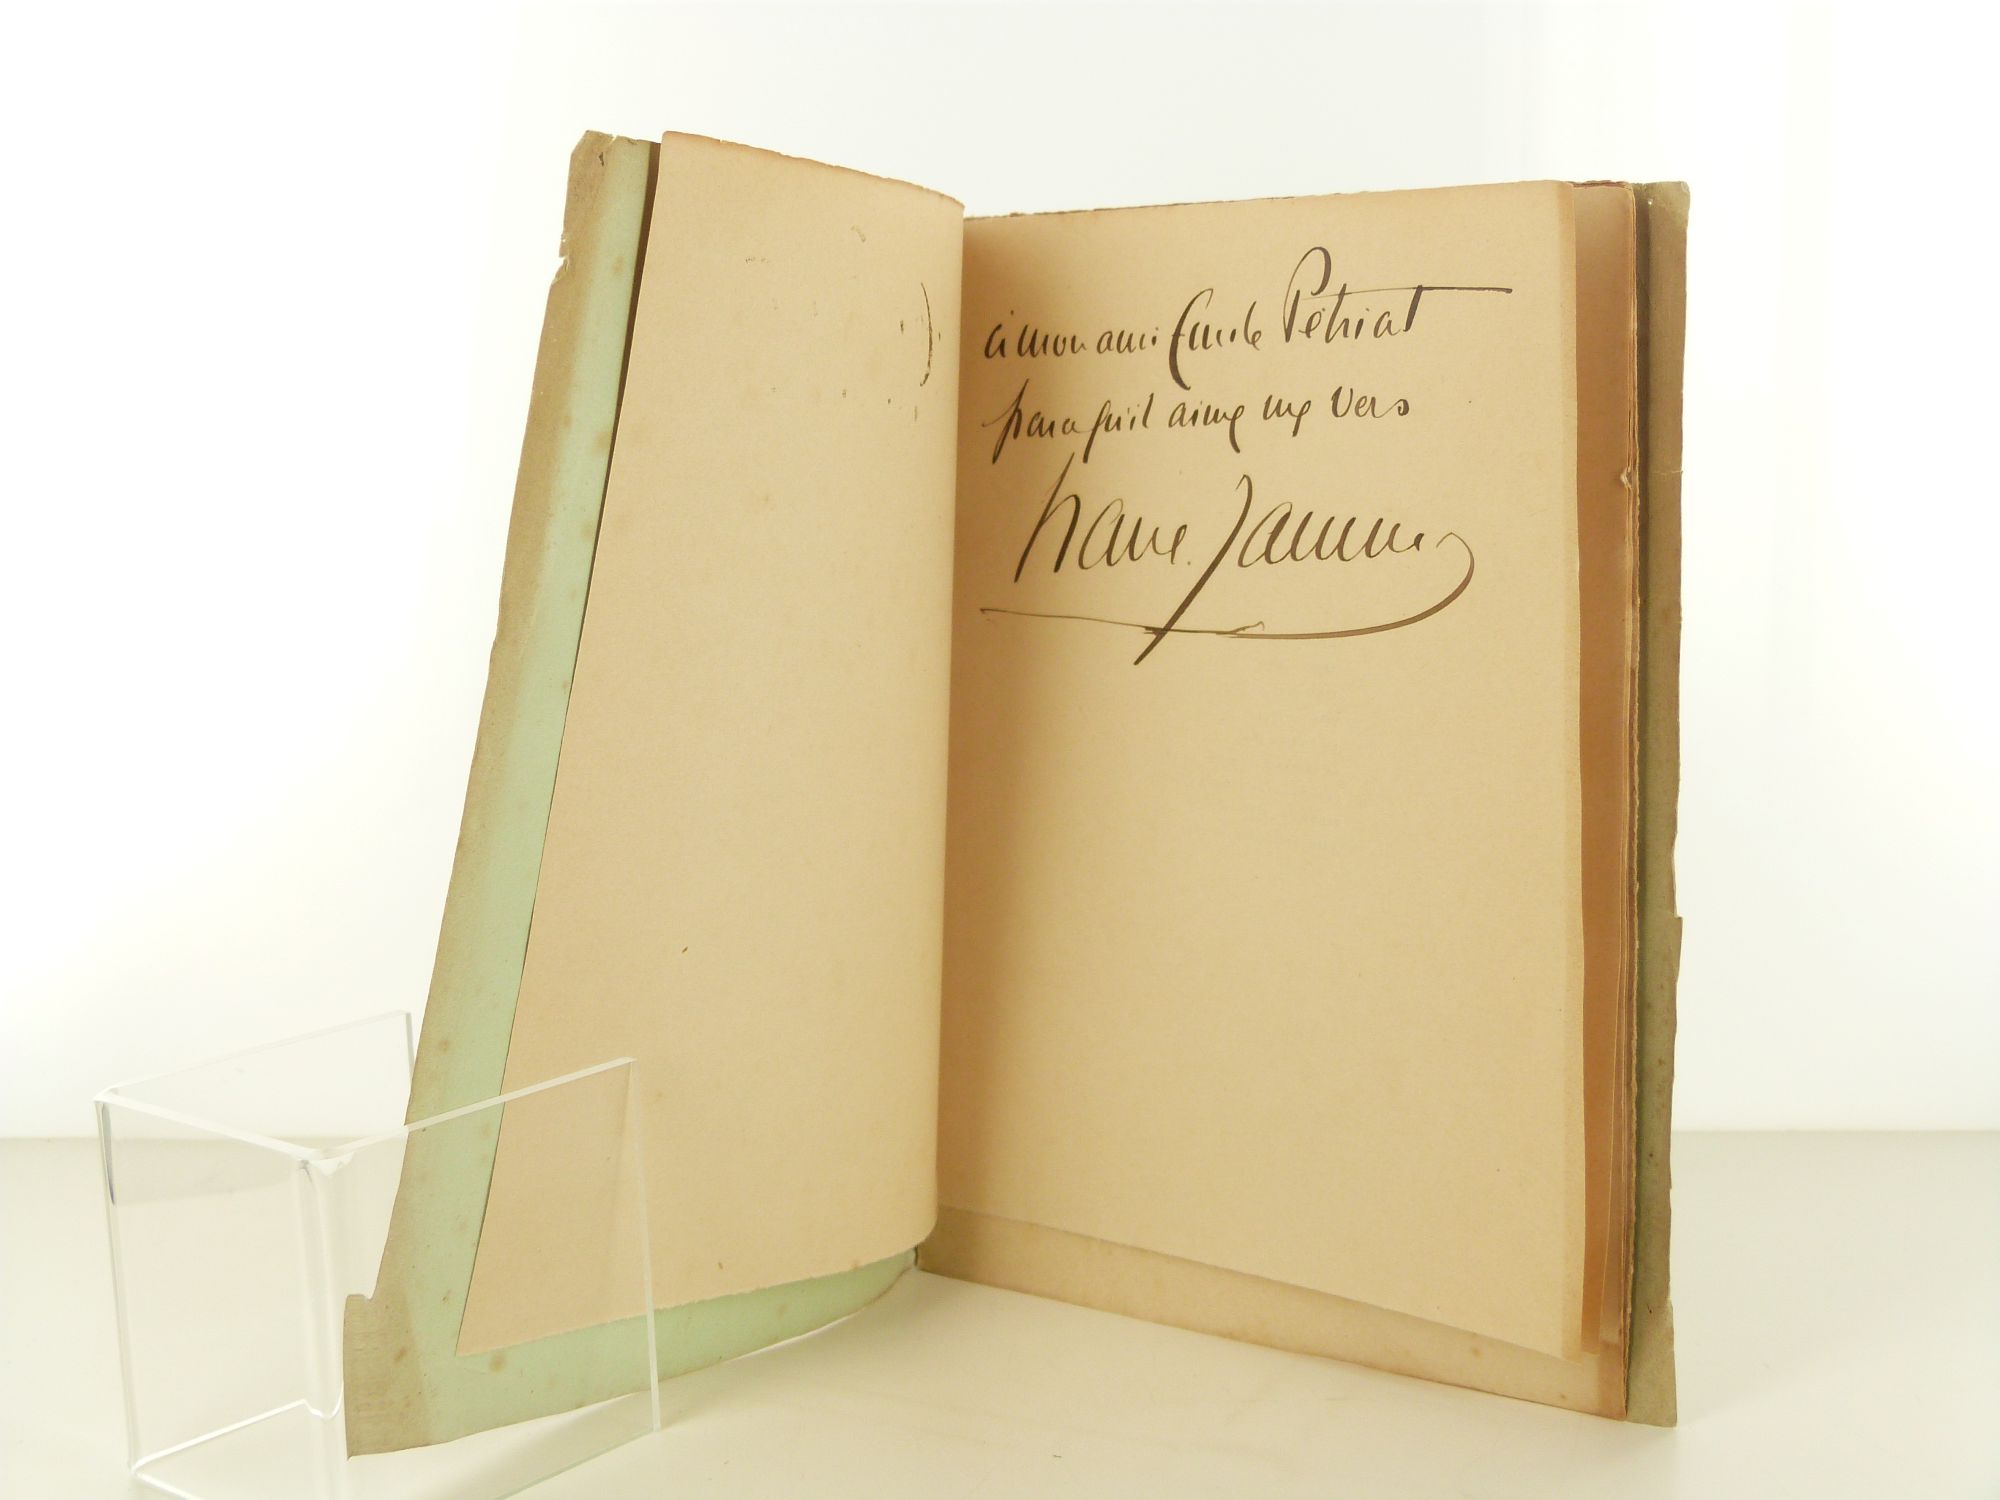 à mon ami Emile Pétriat
parce qu'il aime mes vers
Francis Jammes